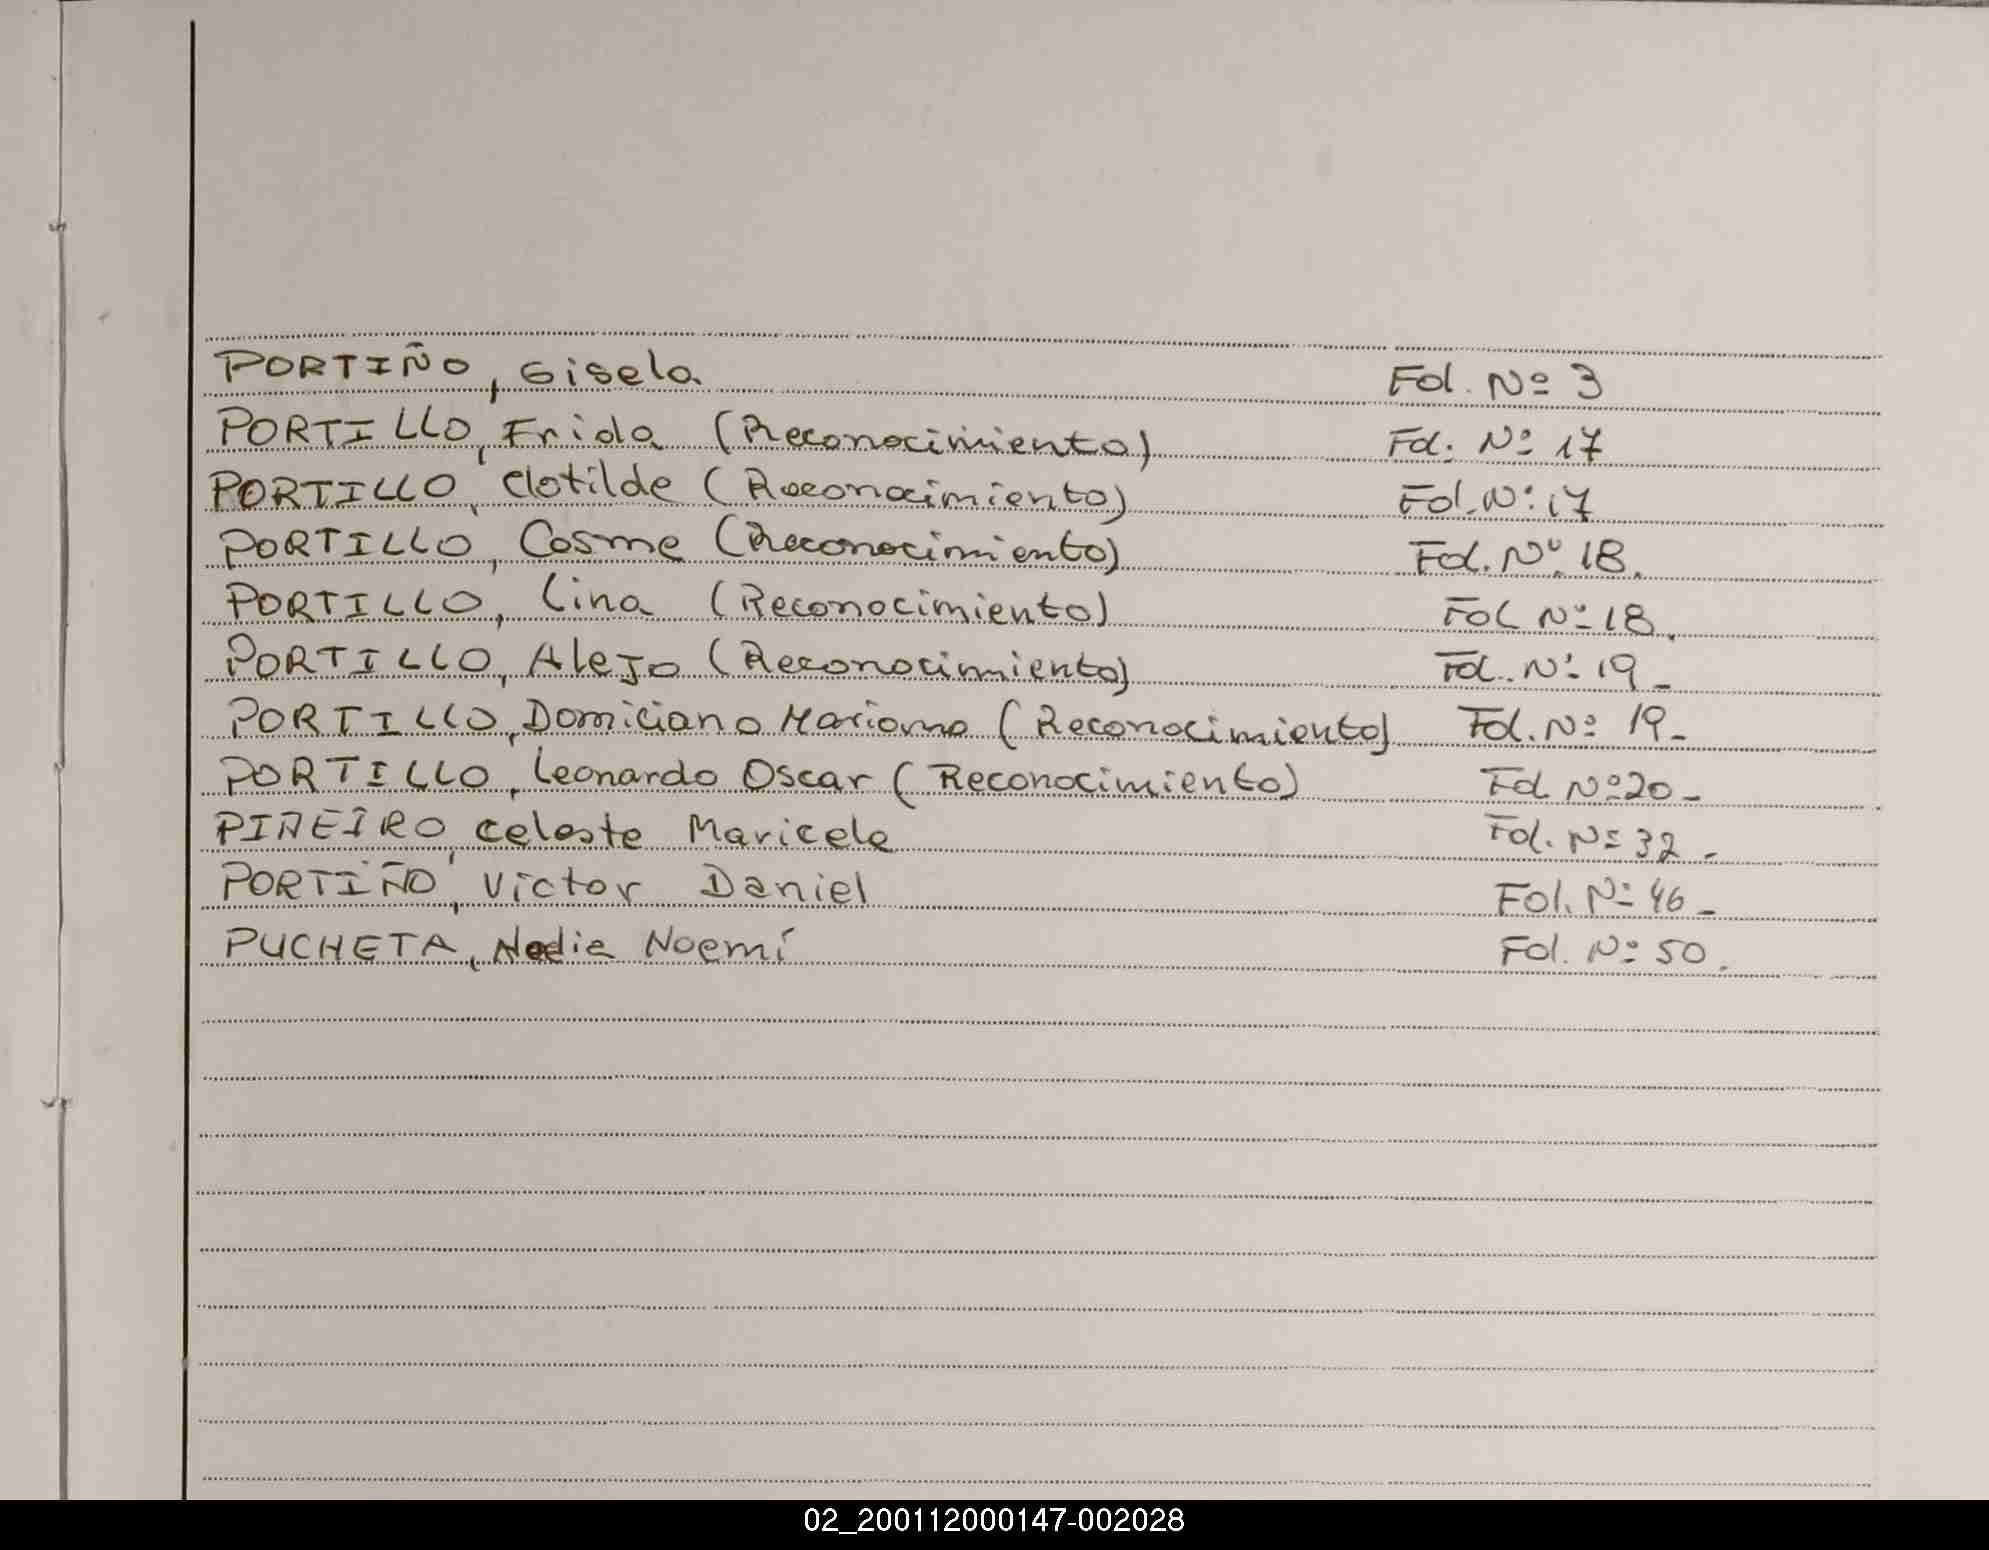 PORTIÑO, Gisela. Fol. Nº 3
PORTILLO, Frida (Reconocimiento) Fol. Nº 17
PORTILLO, Clotilde (Reconocimiento) Fol. Nº 17
PORTILLO, Cosme (Reconocimiento) Fol. Nº 18.
PORTILLO, Lina (Reconocimiento) Fol Nº 18.
PORTILLO, Alejo (Reconocimiento) Fol. Nº 19_
PORTILLO, Domiciano Mariano (Reconocimiento) Fol. Nº 19_
PORTILLO, Leonardo Oscar (Reconocimiento) Fol Nº 20_
PIÑEIRO, Celeste Maricele Fol. Nº 32_
PORTIÑO, Victor Daniel Fol. Nº 46_
PUCHETA, Nadia Noemí Fol. Nº 50.
02_200112000147-002028